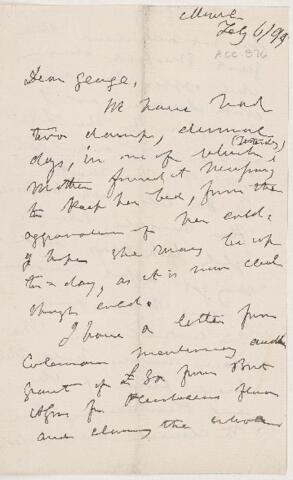 Feby 6/99
ACC-576
Dear George,
We have had
two damp, dismal
(Yesterday)
days, in one of which
Mother found it necessary
to keep her bed, from the
aggravation of her cold.
I hope she may be up
to-day, as it is now clear
though cold.
I have a letter from
Coleman mentioning another
grant of £ from Brit
Assn for Pleistocene flora
and the